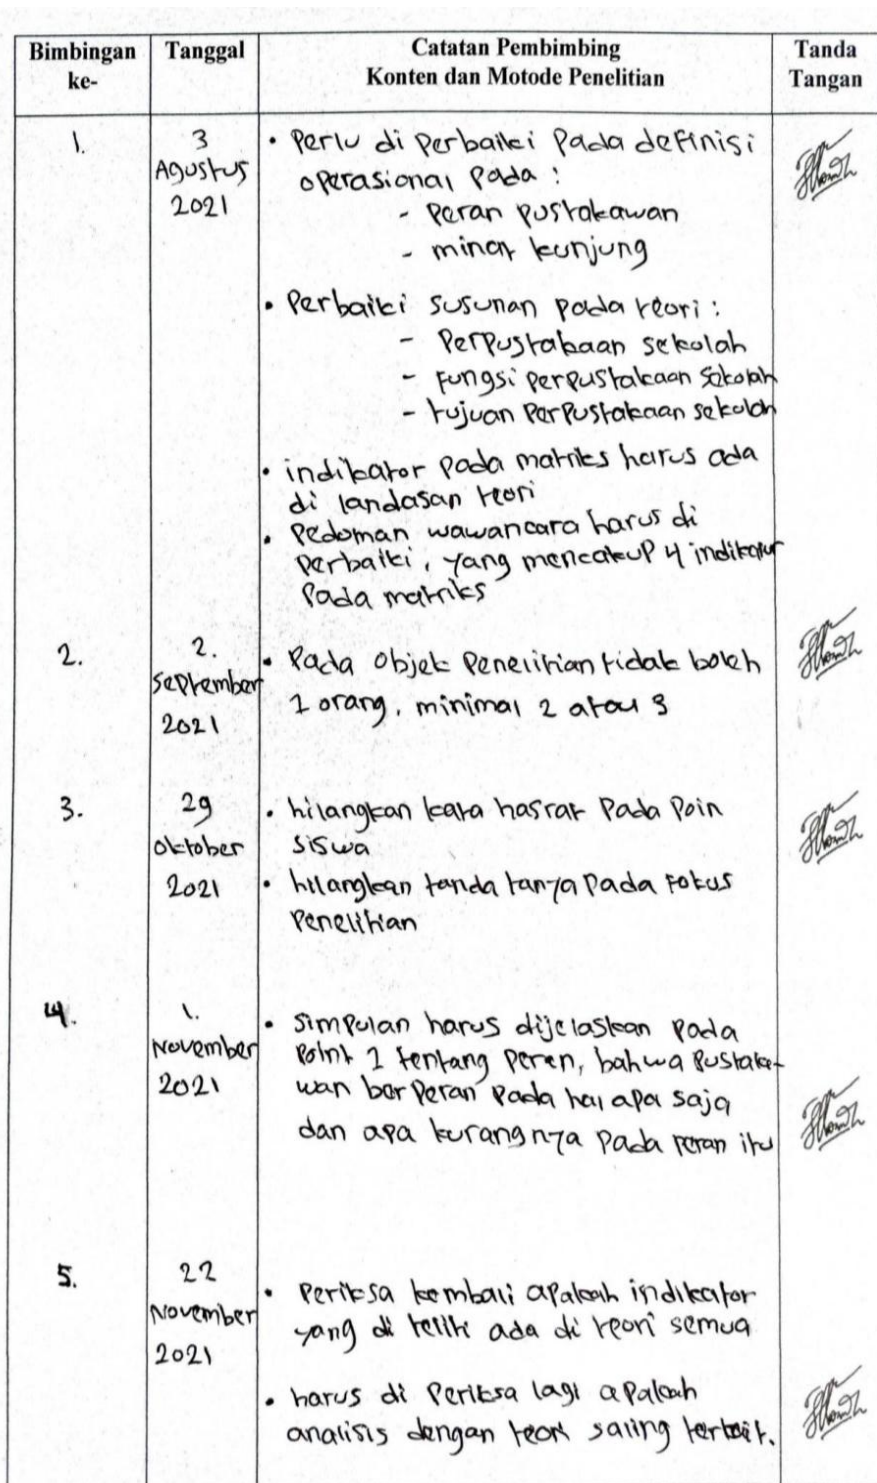 Bimbingan ke-
Tanggal
Catatan Pembimbing
Konten dan Motode Penelitian
Tanda Tangan
1.
3
Agustus
2021
• Perlu di perbaiki pada definisi
operasional pada :
- peran pustakawan
- minat kunjung
• Perbaiki susunan pada teori :
- Perpustakaan sekolah
- Fungsi perpustakaan sekolah
- tujuan perpustakaan sekolah
• indikator pada matriks harus ada
di landasan teori
• Pedoman wawancara harus di
perbaiki, yang mencakup 4 indikator
pada matriks
2.
2.
September
2021
• Pada objek penelitian tidak boleh
1 orang, minimal 2 atau 3
3.
29
Oktober
2021
• hilangkan kata hasrat pada poin
siswa
• hilangkan tanda tanya pada fokus
penelitian
4.
1.
November
2021
• Simpulan harus dijelaskan pada
point 1 tentang peran, bahwa pustaka-
wan berperan pada hal apa saja
dan apa kurangnya pada peran itu
5.
22
November
2021
• Periksa kembali apakah indikator
yang di teliti ada di teori semua
• harus di periksa lagi apakah
analisis dengan teori saling terkait.